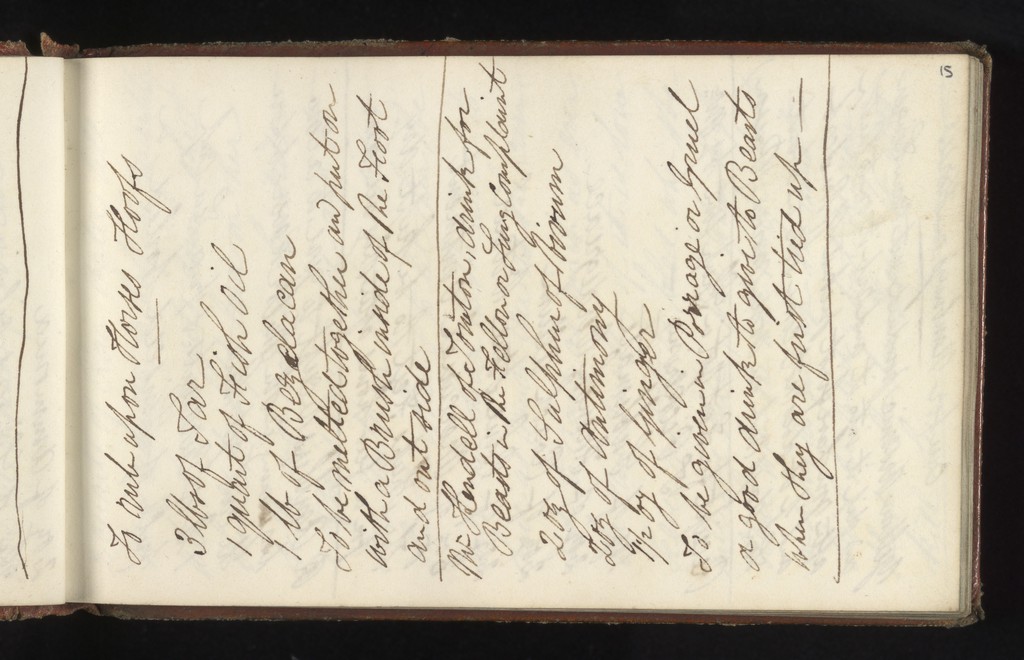 15
To rub upon Horses Hoofs
3 lbs of Tar
1 quart of Fish Oil
1 lb of
To be melted together and put on
with a Brush inside of the Foot
and out side
Mr Kendell of Towton, drink for
Beasts in the Fellon or Lung Complaint
2 oz of Sulphur of
2 oz of Antimony
of Ginger
To be given in Porrage or Gruel
a good drink to give to Beasts
when they are first tied up —